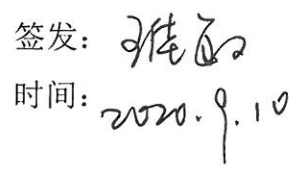 签发：
时间：2020.9.10